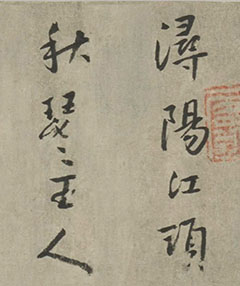 潯陽江頭
秋瑟〻主人